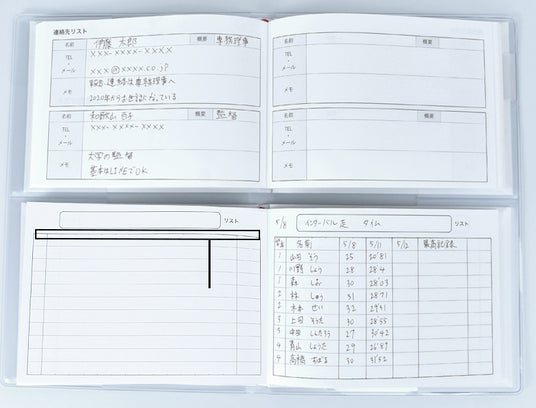 連絡先リスト
名前 伊藤 太郎 概要 専務理事
TEL ・ メール xxx-xxxx-xxxx
xxx@xxxx.co.jp
メモ 報告・連絡は専務理事へ
2020年からお世話になっている
名前 和歌山 百子 概要 監督
TEL ・ メール xxx-xxxx-xxxx
メモ 大学の監督
基本はLINEでOK
名前 概要
TEL ・ メール
メモ
名前 概要
TEL ・ メール
メモ
リスト
5/8 インターバル走 タイム リスト
学年 名前 5/8 5/11 5/12 最高記録
1 山田 そう 25 20'81
1 川野 しょう 28 28'4
1 森 しお 30 28'03
2 林 しゅう 31 28'71
2 木本 せい 32 29'31
3 上司 そうた 30 28'55
3 中田 しんたろう 27 30'42
4 青山 しょうた 29 26'89
4 高橋 すばる 30 31'52